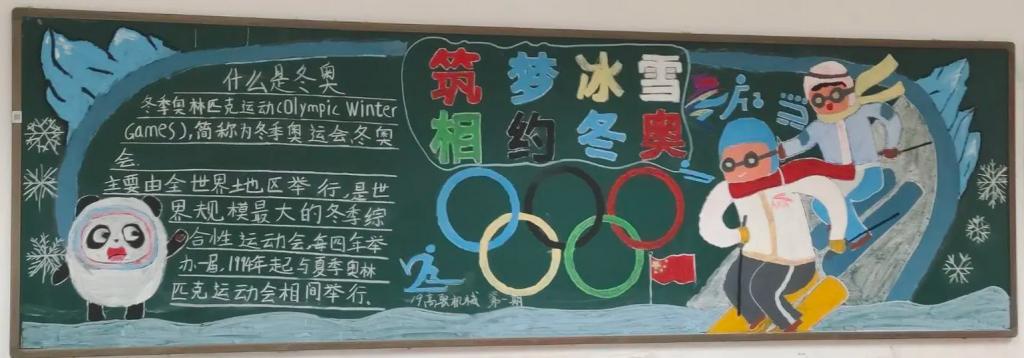 什么是冬奥
冬季奥林匹克运动(Olympic Winter
Games),简称为冬季奥运会、冬奥
会.
主要由全世界地区举行,是世
界规模最大的冬季综
合性运动会,每四年举
办一届,1994年起与夏季奥林
匹克运动会相间举行.
筑梦冰雪
相约冬奥
第一期